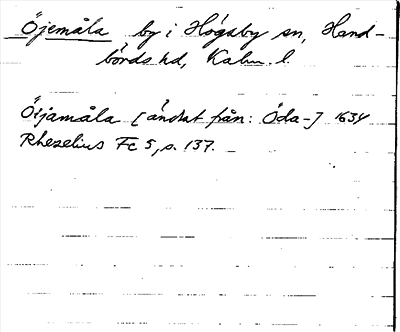 Öjemåla by i Högsby sn, Hand-
börds hd, Kalm. l.
Öijamåla [ändrat från: Öda-] 1634
Rhezelius Fc 5, s. 137.